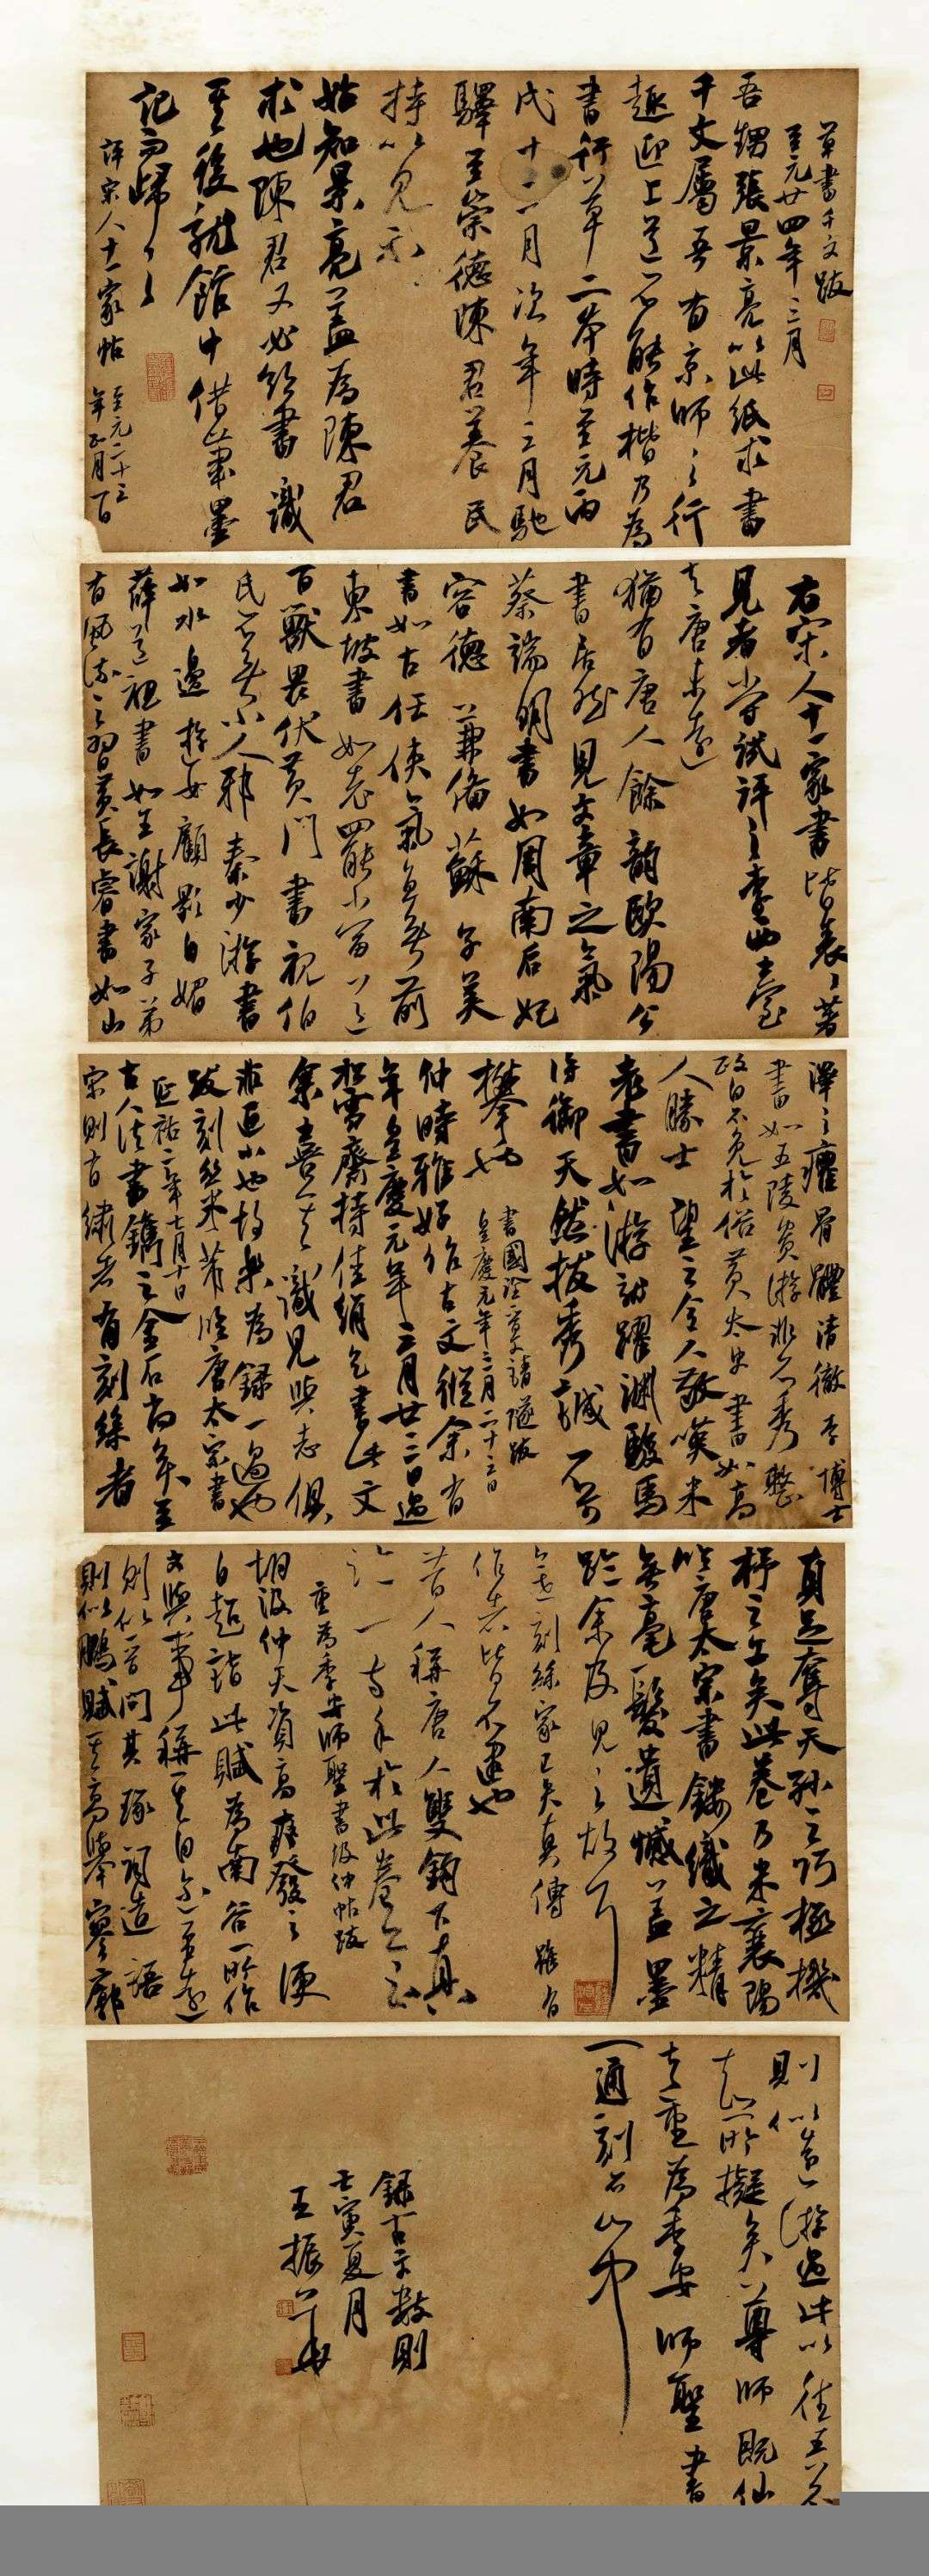 草書千文跋
至元廿四年三月
吾甥張景亮以此紙求書
千文屬吾有京師之行
趣迎上道不能作楷乃為
書行草二本時至元丙
戌十二月次年三月馳
驛至崇德陳君養民
持以見示
姑知景亮蓋為陳君
求也陳君又必欲書識
其後就館中借筆墨
記而歸之
評宋人十一家帖
至元二十三
年正月一日
右宋人十一家書皆表表著
見者嘗試評之李西臺
去唐未遠
猶有唐人餘韻歐陽公
書居然見文章之氣
蔡端明書如周南后妃
容德兼備蘇子美
書如古任俠氣直無前
東坡書如老羆當道
百獸畏伏黃門書視伯
氏不無小人邪秦少游書
如水邊游女顧影自媚
薛道祖書如王謝家子弟
有風流之習黃長睿書如山
澤之癯骨體清徹李博士
書如五陵貴游非不秀整
政自不免於俗黃太史書如高
人勝士望之令人敬嘆米
老書如游龍躍淵駿馬
得御天然拔秀誠不可
攀也
書國詮章草後跋
皇慶元年三月二十三日
仲時雅好作古文從余有
年皇慶元年三月廿三日過
松雪齋持佳絹乞書此文
余喜其識見與志俱
非近小也故樂為錄一過也
跋刻絲米芾臨唐太宗書
延祐二年七月十日
古人法書鐫之金石尚矣至
宋則有繡者有刻絲者
真足奪天孫之巧極機
杼之工矣此卷乃米襄陽
臨唐太宗書鏤織之精
無毫髮遺憾蓋墨
跡余及見之故云
今世刻絲家已失真傳雖有
作者皆不逮也
昔人稱唐人雙鉤下真
跡一等於此卷亦云
重為季安師聖書汲仲帖跋
胡汲仲天資高爽發言便
自超詣此賦為南谷一所作
文與事稱其自
則似
則似鵬賦其高舉寥廓
則似遠游過此以往吾不
知所擬矣尊師既仙
去重為季安師聖書
一通刻石山中
錄古字數則
壬寅夏月
王振